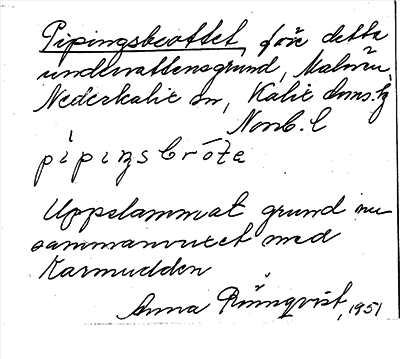 Pipingsbrottet, före detta
undervattensgrund, Malören,
Nederkalix sn, Kalix
Norrb. l
Uppslammat grund nu
sammanvuxet med
Karmudden
Anna Rönnqvist, 1951